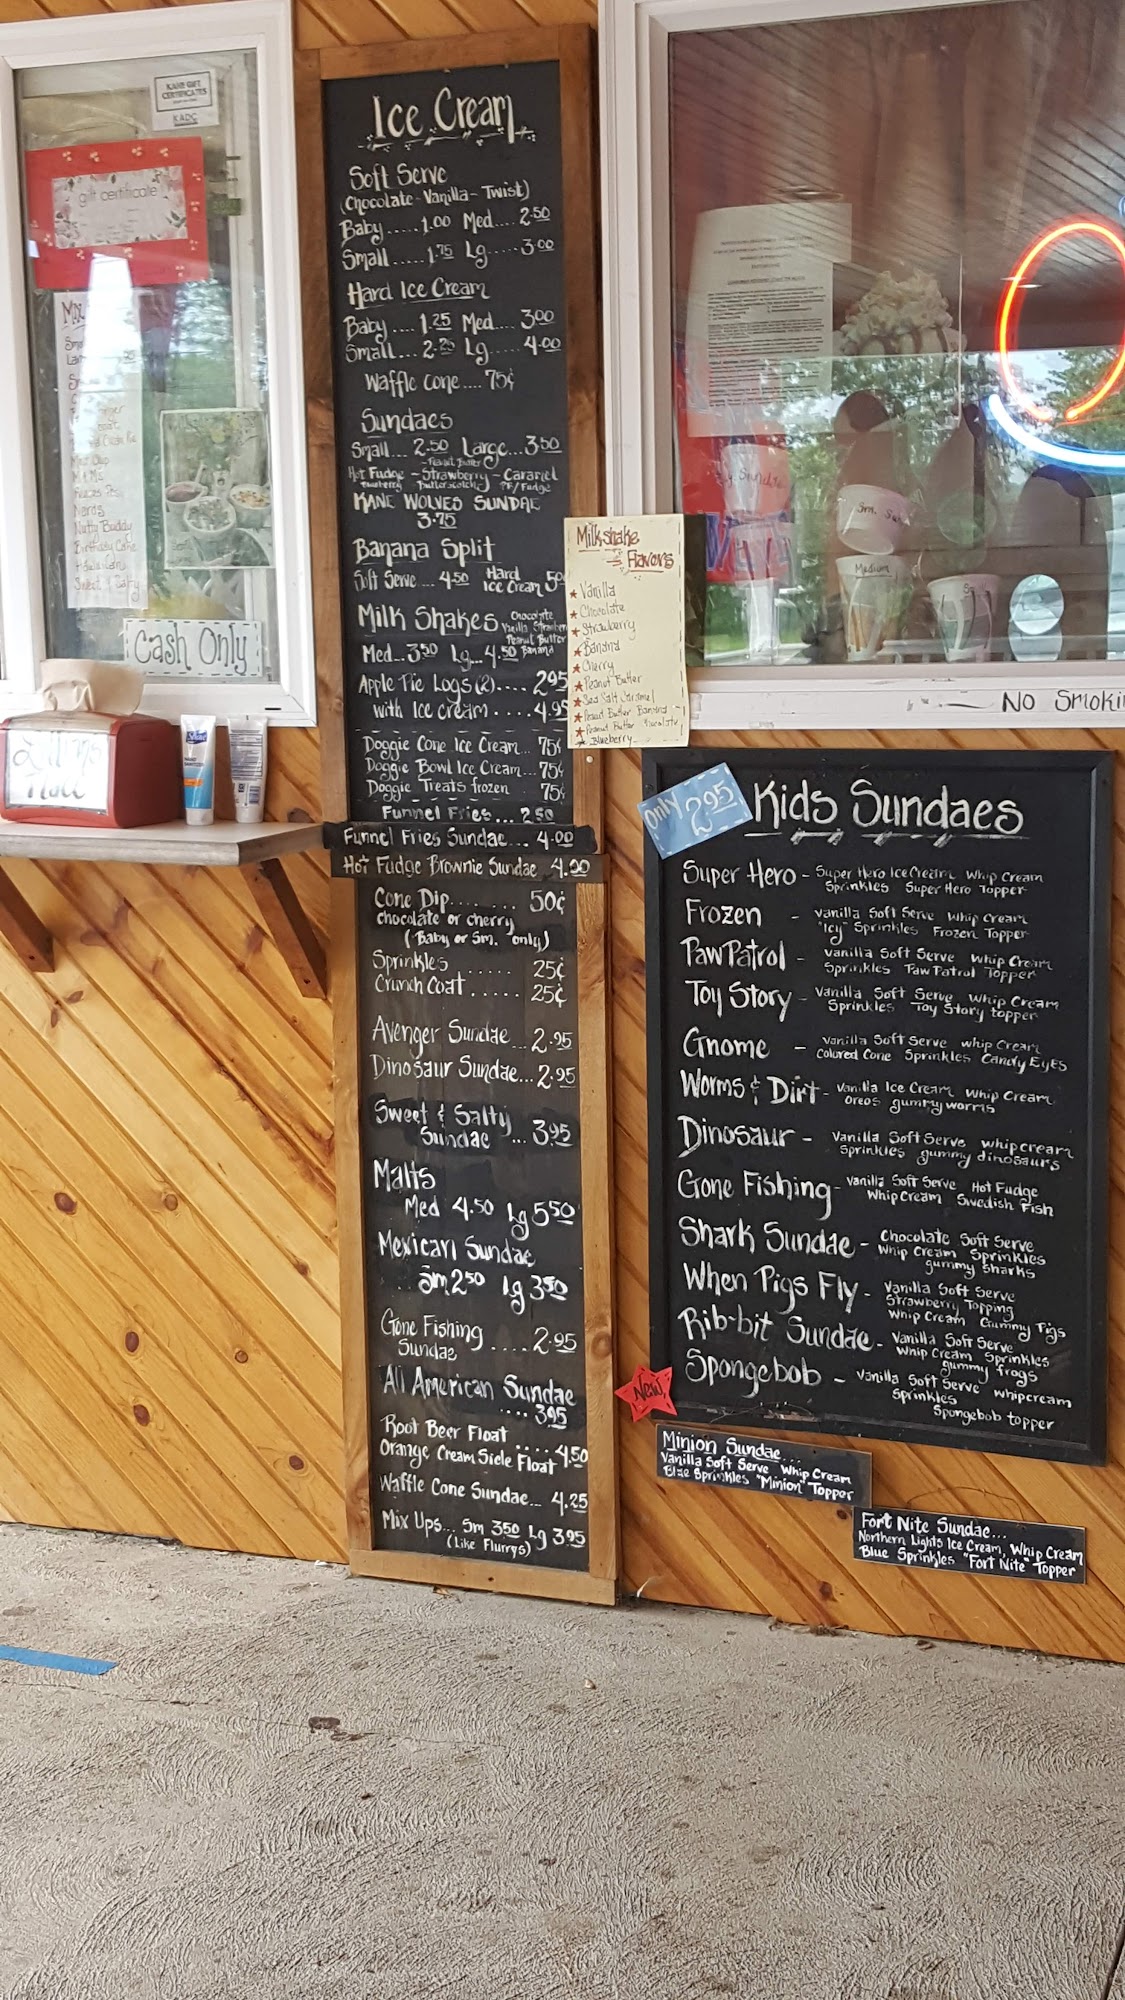 KANE GIFT
CERTIFICATES
KADC
gift certificate
Nerds
Nutty Buddy
Birthday Cake
Cash Only
Ice Cream
Soft Serve
(Chocolate - Vanilla - Twist)
Baby.....1.00 Med....2.50
Small.....1.75 Lg.....3.00
Hard Ice Cream
Baby....1.25 Med....3.00
Small...2.25 Lg.....4.00
Waffle cone....75¢
Sundaes
Small...2.50 Large...3.50
-Peanut Butter
Hot Fudge - Strawberry - Caramel
Butterscotch PB/Fudge
KANE WOLVES SUNDAE
3.75
Banana Split
Soft Serve...4.50 Hard
Ice Cream 50
Milk Shakes Chocolate
Vanilla Strawberry
Peanut Butter
Banana
Med...3.50 Lg...4.50
Apple Pie Logs (2)....2.95
with Ice cream.....4.95
Doggie Cone Ice Cream...75¢
Doggie Bowl Ice Cream...75¢
Doggie Treats frozen 75¢
Funnel Fries...2.50
Funnel Fries Sundae...4.00
Hot Fudge Brownie Sundae 4.00
Cone Dip........50¢
chocolate or cherry
(Baby or Sm. only)
Sprinkles.....25¢
Crunch Coat.....25¢
Avenger Sundae...2.95
Dinosaur Sundae...2.95
Sweet & Salty
Sundae...3.95
Malts
Med 4.50 Lg 5.50
Mexican Sundae
Sm 2.50 Lg 3.50
Gone Fishing
Sundae....2.95
All American Sundae
....3.95
Root Beer Float
Orange Cream Sicle Float....4.50
Waffle Cone Sundae...4.25
Mix Ups...Sm 3.50 Lg 3.95
(Like Flurrys)
Milkshake
Flavors
Vanilla
Chocolate
Strawberry
Banana
Cherry
Peanut Butter
Sea Salt Caramel
Peanut Butter Banana
Peanut Butter Chocolate
Blueberry
Medium
No Smoki
only 2.95
Kids Sundaes
Super Hero - Super Hero Ice Cream Whip Cream
Sprinkles Super Hero Topper
Frozen - Vanilla Soft Serve Whip Cream
"Icy" Sprinkles Frozen Topper
Paw Patrol - Vanilla Soft Serve Whip Cream
Sprinkles Paw Patrol Topper
Toy Story - Vanilla Soft Serve Whip Cream
Sprinkles Toy Story topper
Gnome - Vanilla Soft Serve whip Cream
Colored Cone Sprinkles Candy Eyes
Worms & Dirt - Vanilla Ice Cream whip Cream
oreos gummy worms
Dinosaur - Vanilla Soft Serve whip cream
Sprinkles gummy dinosaurs
Gone Fishing - Vanilla Soft Serve Hot Fudge
Whip Cream Swedish Fish
Shark Sundae - Chocolate Soft Serve
Whip Cream Sprinkles
gummy sharks
When Pigs Fly - Vanilla Soft Serve
Strawberry Topping
Whip Cream Gummy Pigs
Rib-bit Sundae - Vanilla Soft Serve
Whip Cream Sprinkles
gummy frogs
New
Spongebob - Vanilla Soft Serve whipcream
sprinkles
Spongebob topper
Minion Sundae...
Vanilla Soft Serve Whip Cream
Blue Sprinkles "Minion" Topper
Fort Nite Sundae...
Northern Lights Ice Cream, Whip Cream
Blue Sprinkles "Fort Nite" Topper